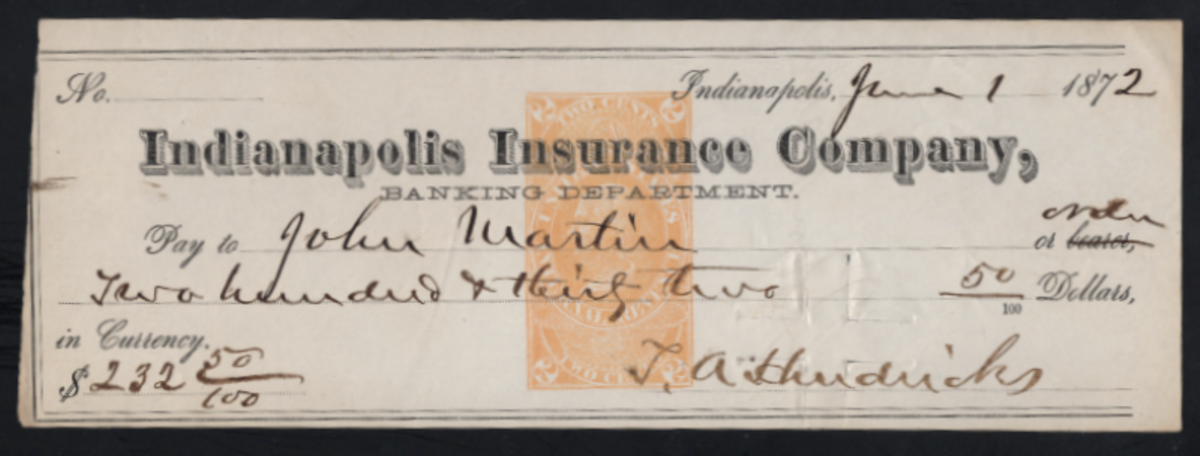 No. Indianapolis, June 1 1872
TWO CENTS
Indianapolis Insurance Company,
BANKING DEPARTMENT.
order
Pay to John Martin or bearer,
Two hundred & thirty two 50/100 Dollars,
in Currency.
$232 50/100 T. A. Hendricks
TWO CENTS